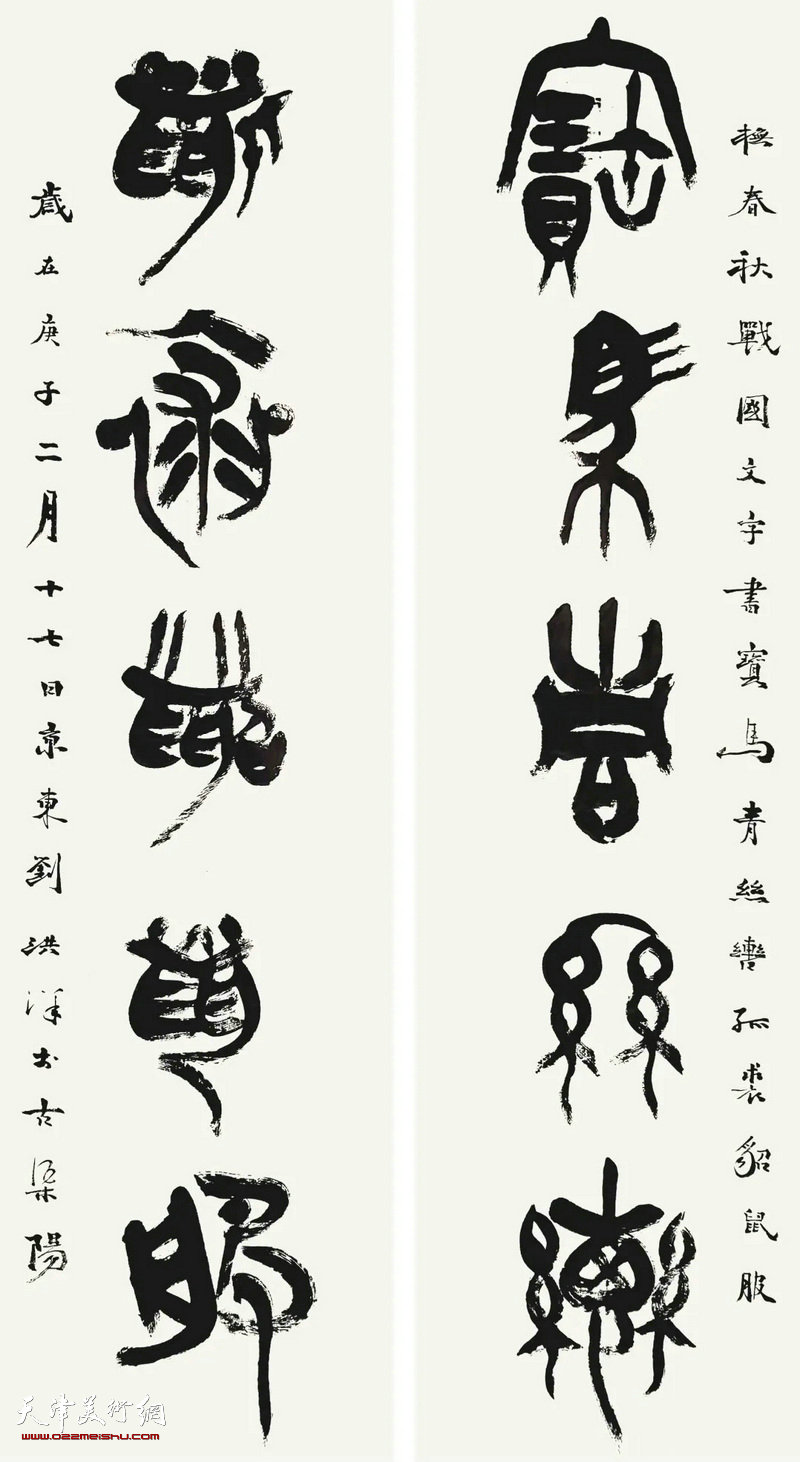 橅春秋戰國文字書寶馬青絲轡狐裘貂鼠服
寶馬青絲轡
狐裘貂鼠服
歲在庚子二月十七日京東劉洪洋於古渠陽
天津美術網
www.022meishu.com